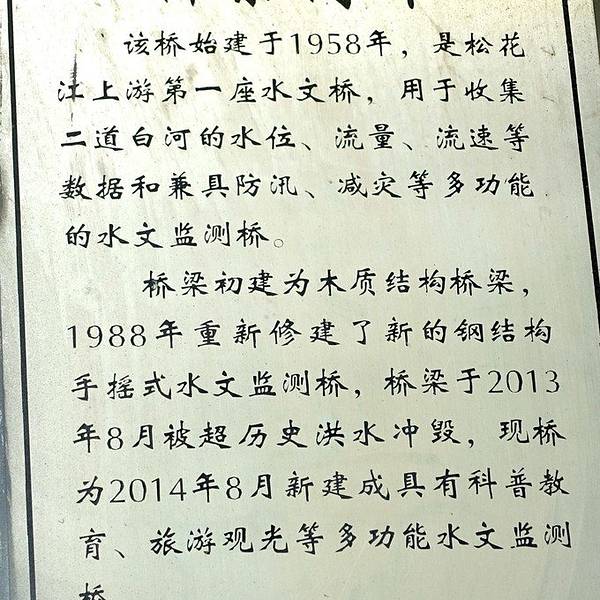 该桥始建于1958年，是松花
江上游第一座水文桥，用于收集
二道白河的水位、流量、流速等
数据和兼具防汛、减灾等多功能
的水文监测桥。
桥梁初建为木质结构桥梁，
1988年重新修建了新的钢结构
手摇式水文监测桥，桥梁于2013
年8月被超历史洪水冲毁，现桥
为2014年8月新建成具有科普教
育、旅游观光等多功能水文监测
桥